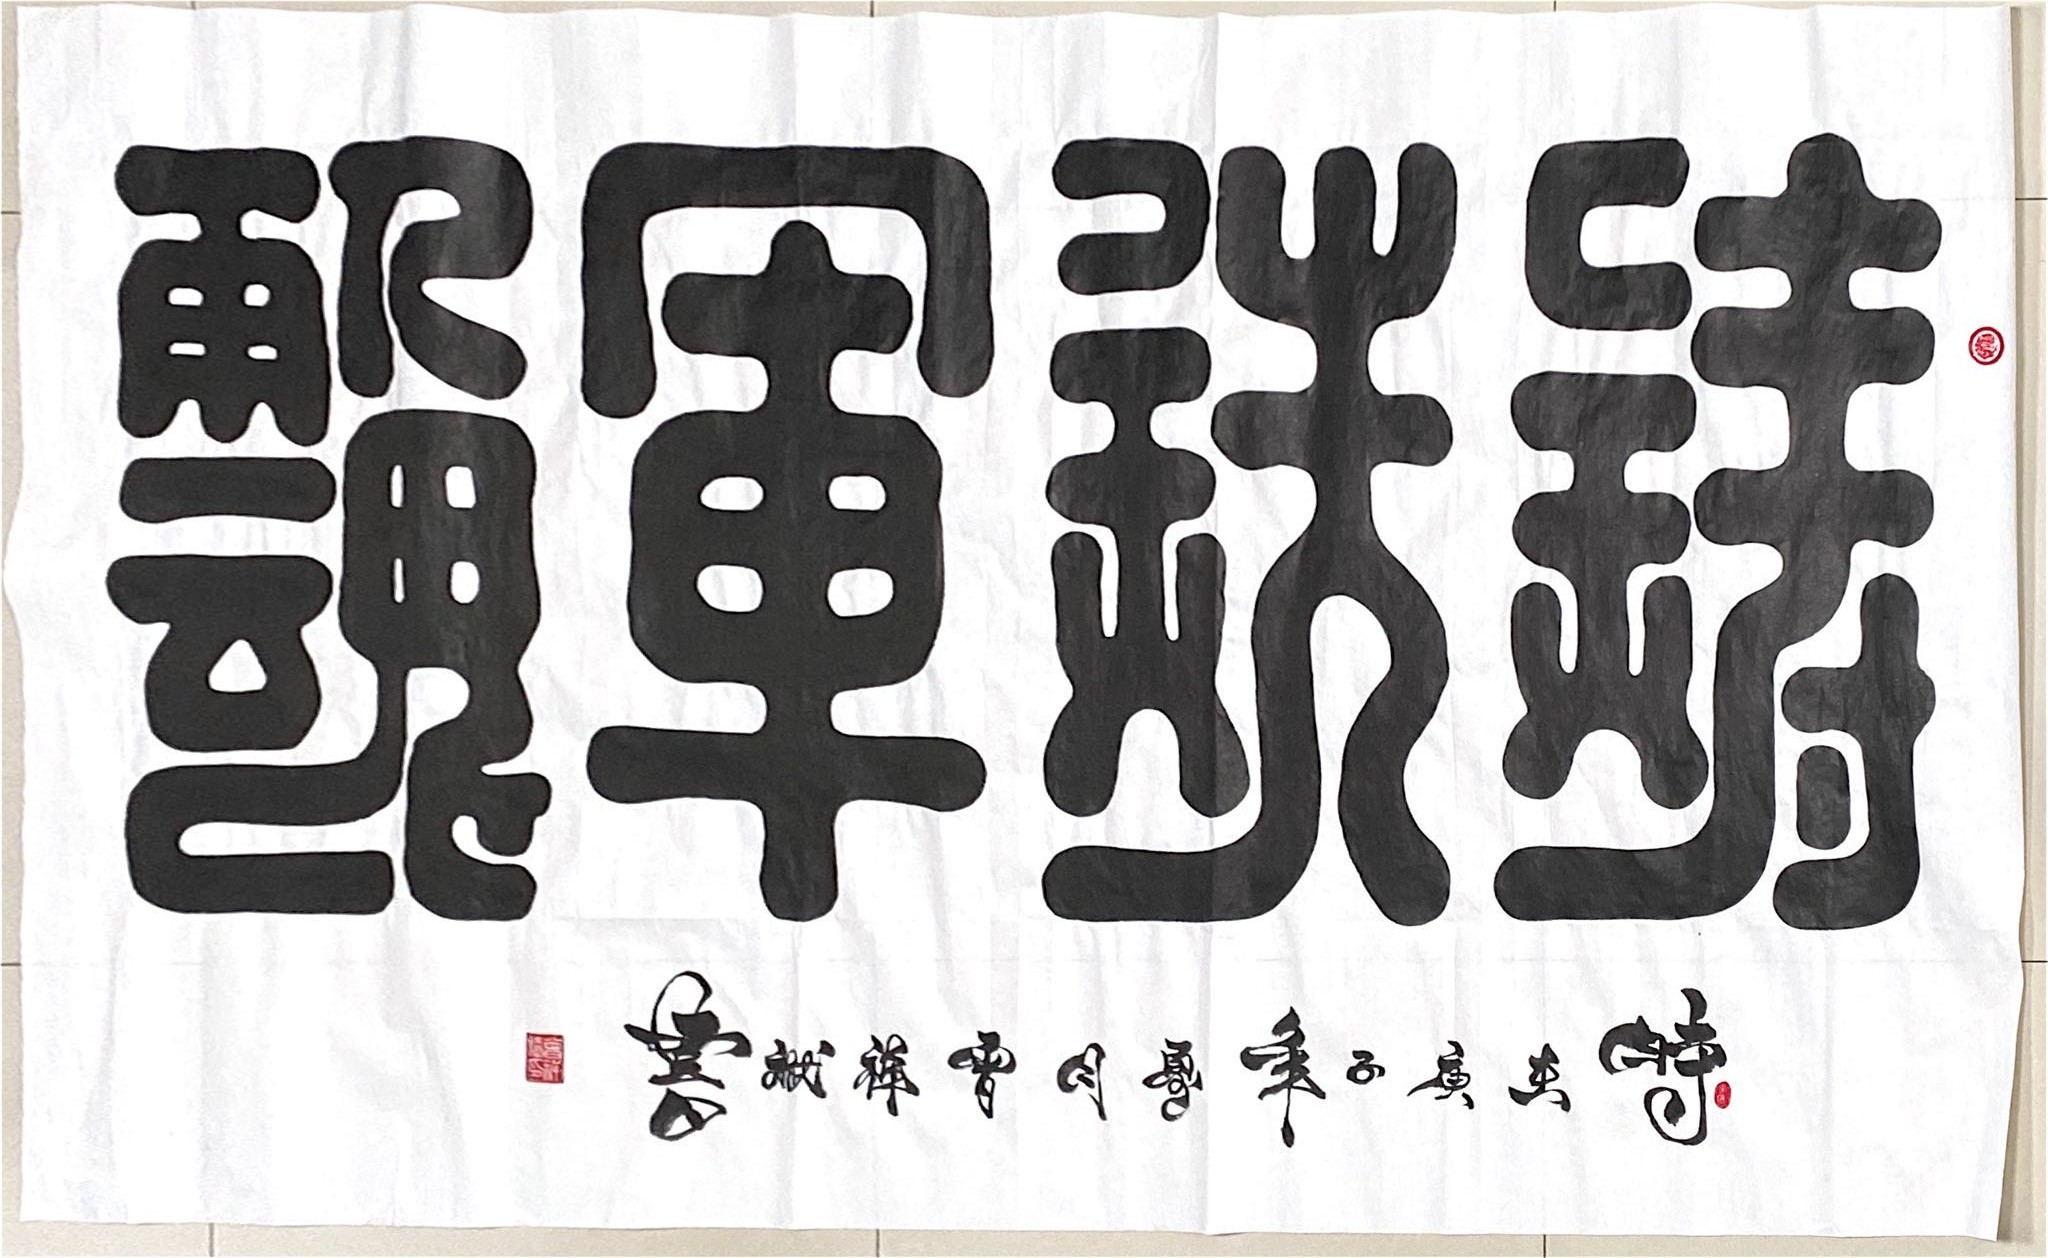 铸铁軍魂
時在庚子年夏月曾祥斌書